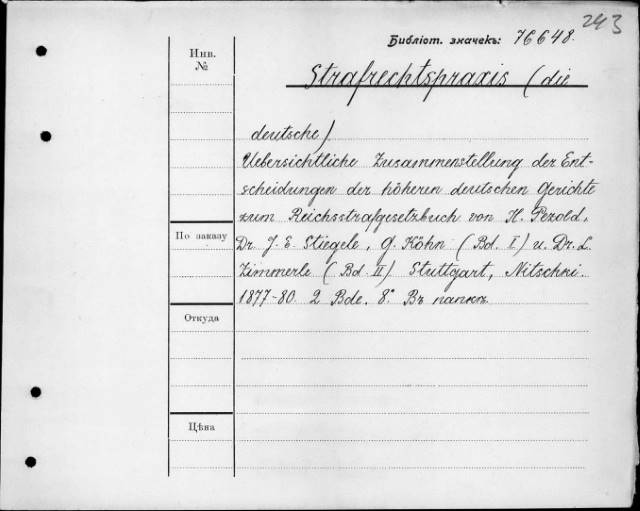 243
Библіот. значекъ: 76648.
Инв.
№
Strafrechtspraxis (die
deutsche)
Uebersichtliche Zusammenstellung der Ent-
scheidungen der höheren deutschen Gerichte
zum Reichsstrafgesetzbuch von H. Pezold,
По заказу
Dr. J. E. Stiegele, G. Köhn (Bd. I) u. Dr. L.
Zimmerle (Bd. II) Stuttgart, Nitschke
1877-80. 2 Bde. 8.° Въ папкѣ.
Откуда
Цѣна